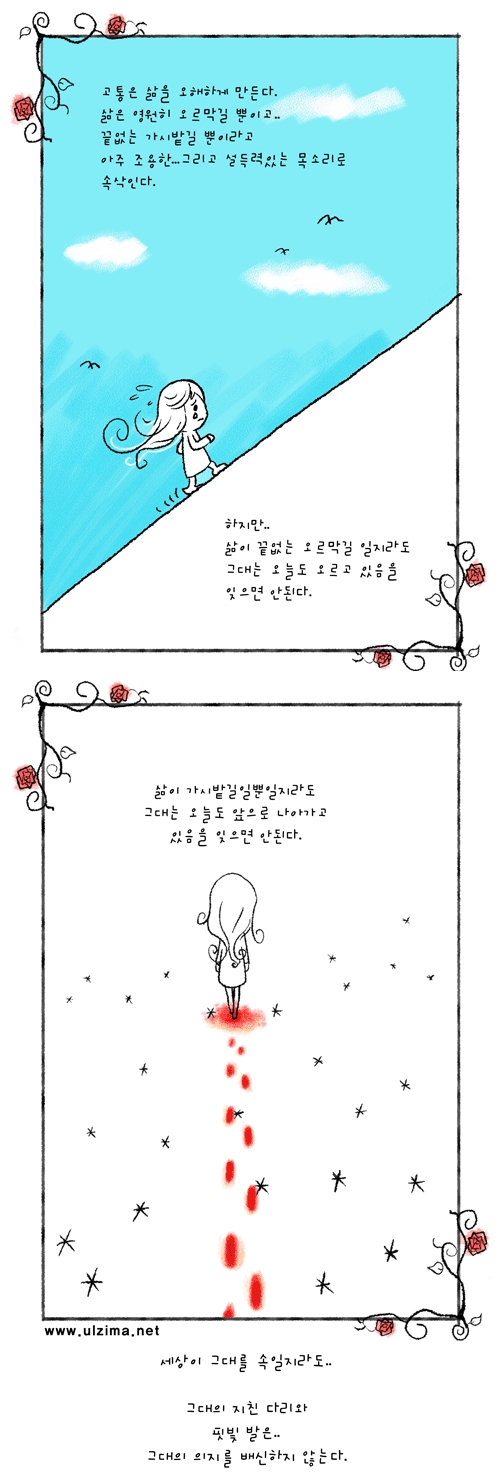 고통은 삶을 오해하게 만든다.
삶은 영원히 오르막길 뿐이고..
끝없는 가시밭길 뿐이라고
아주 조용한...그리고 설득력있는 목소리로
속삭인다.
하지만..
삶이 끝없는 오르막길 일지라도
그대는 오늘도 오르고 있음을
잊으면 안된다.
삶이 가시밭길일뿐일지라도
그대는 오늘도 앞으로 나아가고
있음을 잊으면 안된다.
www.ulzima.net
세상이 그대를 속일지라도..
그대의 지친 다리와
핏빛 발은..
그대의 의지를 배신하지 않는다.